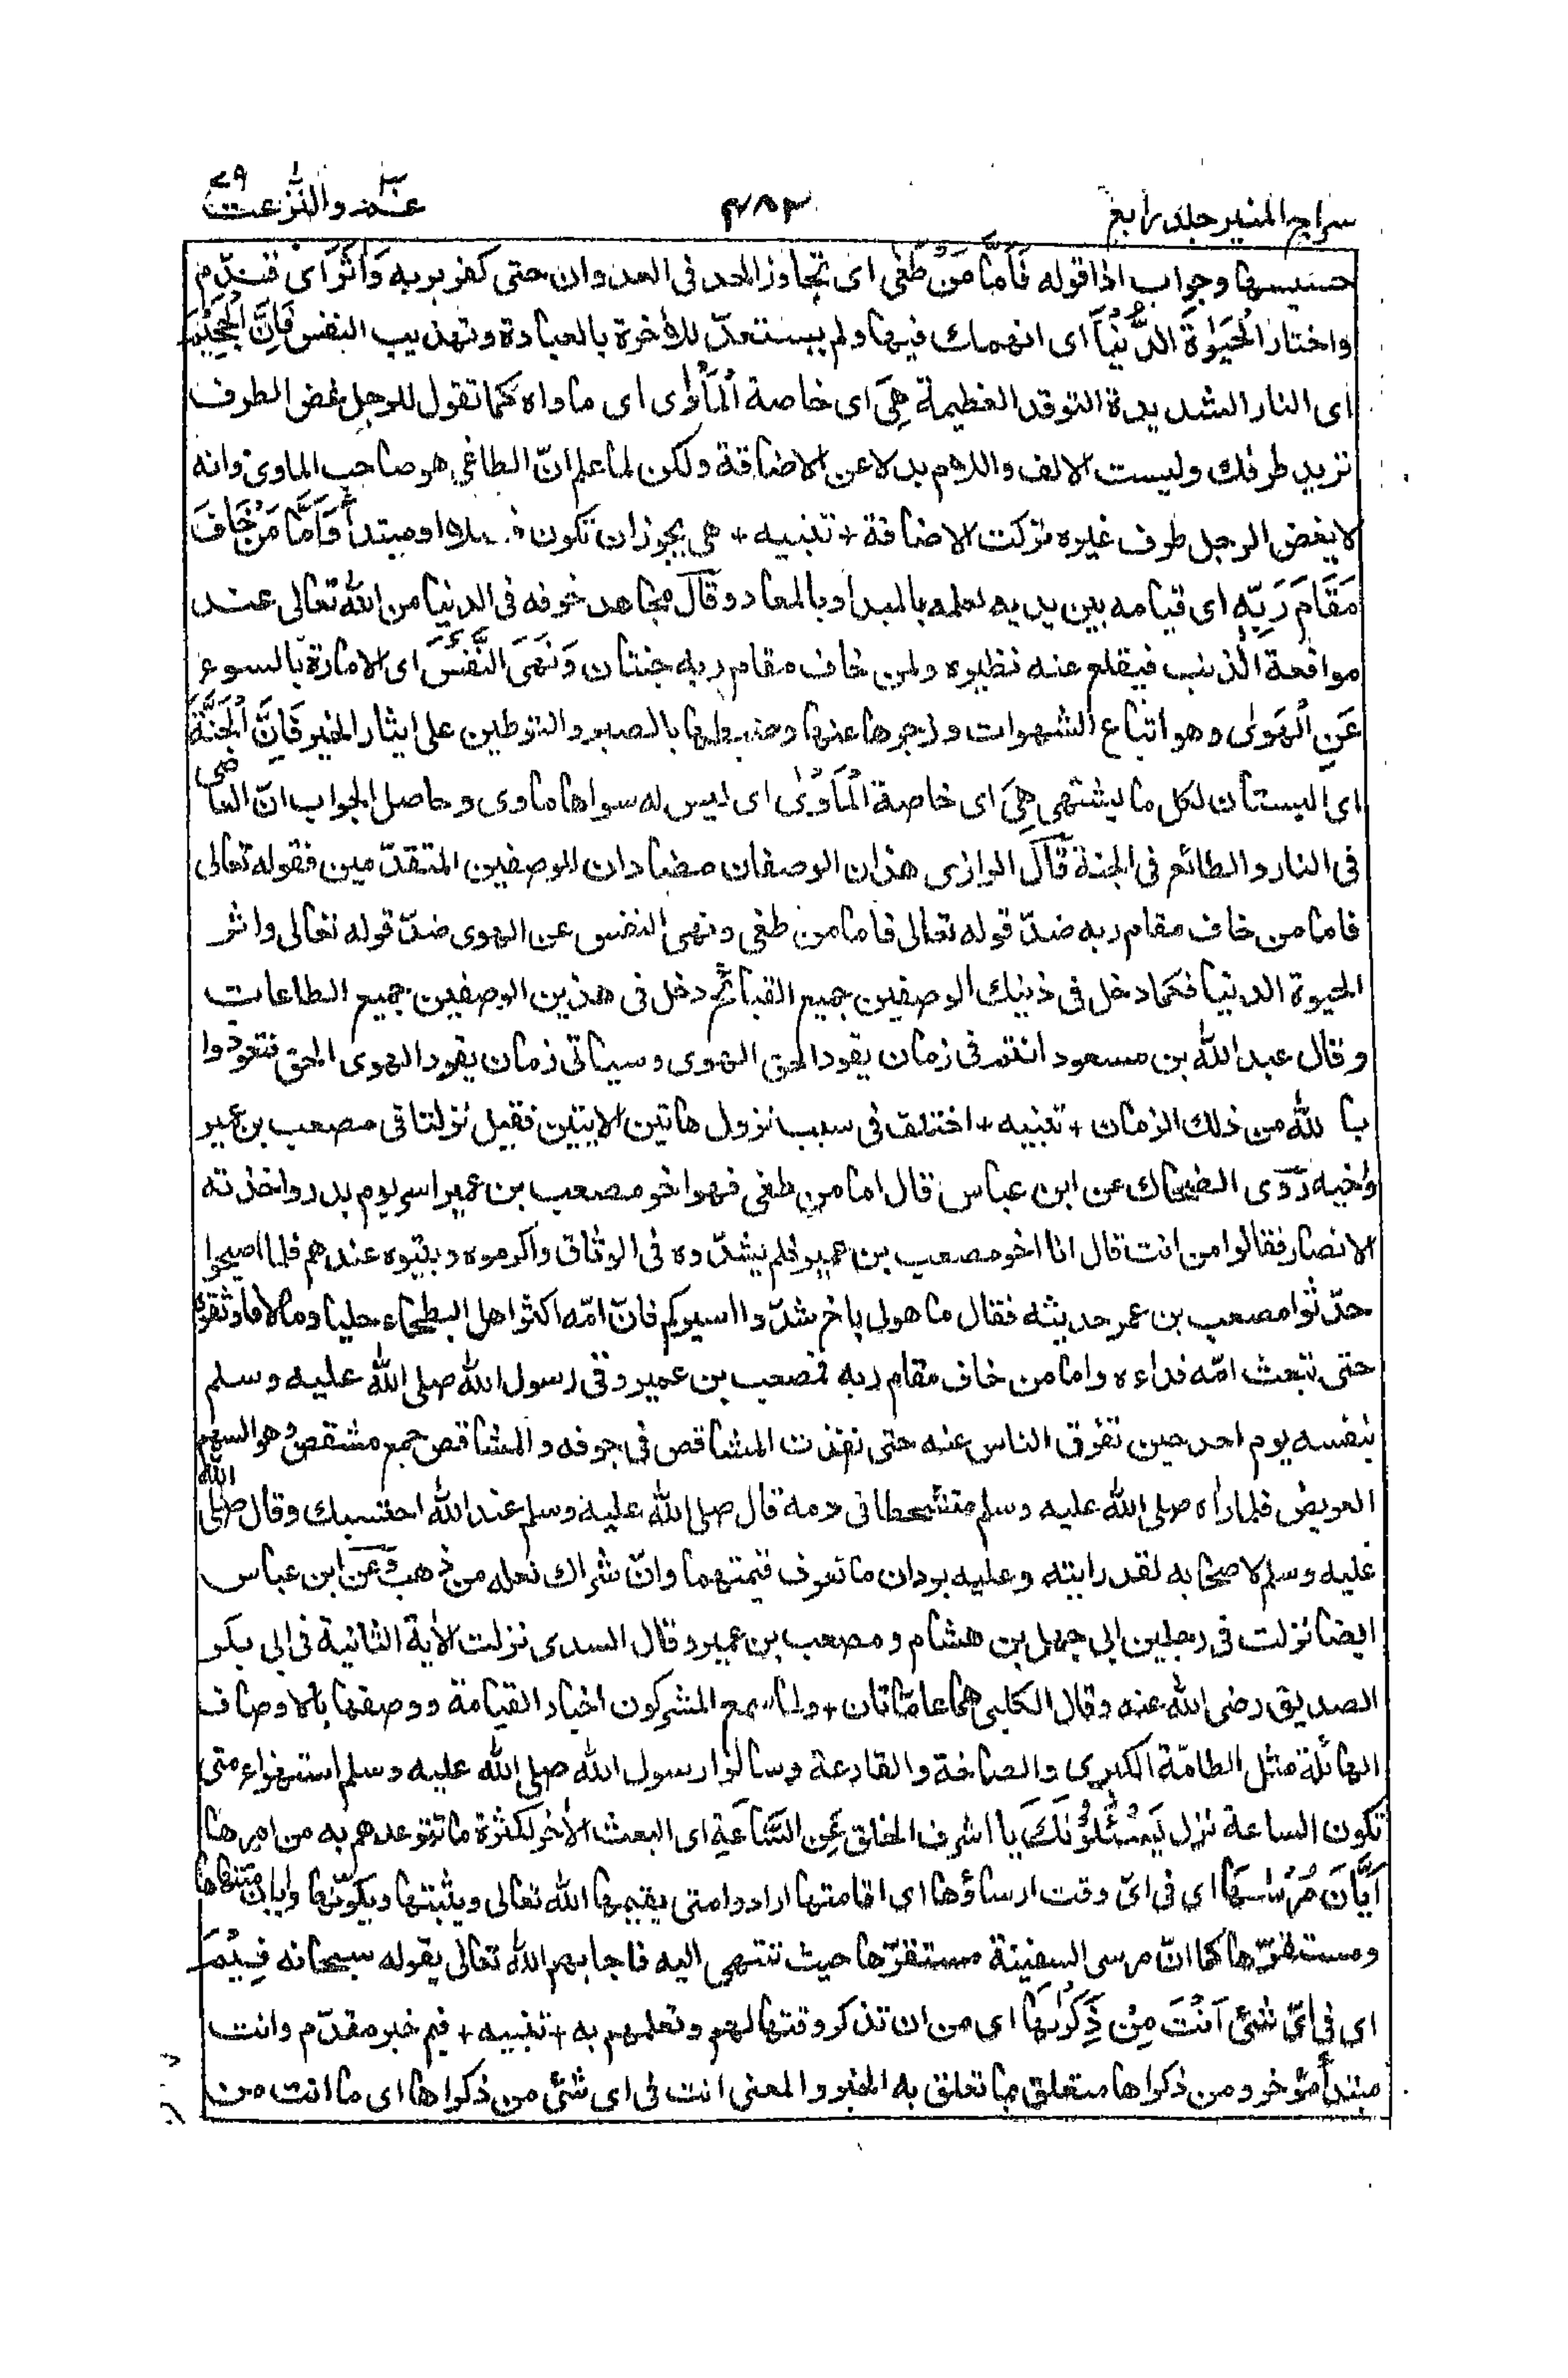 سراج المنير جلد رابع
٤٨٣
عم ٣٠ والنّٰزعت ٧٩
حسيسها وجواب اذا قوله فَاَمَّا مَنْ طَغٰى اى تجاوز الحد فى العدوان حتى كفر بربه وَاٰثَرَ اى قدّم
واختار الْحَيٰوةَ الدُّنْيَا اى انهمك فيها ولم يستعدّ للاٰخرة بالعبادة وتهذيب النفس فَاِنَّ الْجَحِيْمَ
اى النار الشديدة التوقد العظيمة هِيَ اى خاصة الْمَاْوٰى اى ماواه كما تقول للرجل غض الطرف
تريد طرفك وليست الالف واللام بدلا عن الاضافة ولكن لما علم انّ الطاغى هو صاحب الماوى وانه
لا يغض الرجل طرف غيره تركت الاضافة + تنبيه + هى يجوز ان تكون او مبتدأ وَاَمَّا مَنْ خَافَ
مَقَامَ رَبِّهٖ اى قيامه بين يديه لعلمه بالمبدا وبالمعاد وقال مجاهد خوفه فى الدنيا من الله تعالى عند
مواقعة الذنب فيقلع عنه نظيره ولمن خاف مقام ربه جنتان وَنَهَى النَّفْسَ اى الامارة بالسوء
عَنِ الْهَوٰى وهو اتباع الشهوات وزجرها عنها وضبطها بالصبر والتوطين على ايثار الخير فَاِنَّ الْجَنَّةَ
اى البستان لكل ما يشتهى هِيَ اى خاصة الْمَاْوٰى اى ليس له سواها ماوى وحاصل الجواب انّ العاصى
فى النار والطائع فى الجنة قال الرازى هذان الوصفان مضادان للوصفين المتقدّمين فقوله تعالى
فاما من خاف مقام ربه ضدّ قوله تعالى فاما من طغى ونهى النفس عن الهوى ضدّ قوله تعالى واثر
الحيوة الدنيا فكما دخل فى ذينك الوصفين جميع القبائح دخل فى هذين الوصفين جميع الطاعات
وقال عبد الله بن مسعود انتم فى زمان يقود الحق الهوى وسياتى زمان يقود الهوى الحق فتعوّذوا
بالله من ذلك الزمان + تنبيه + اختلف فى سبب نزول هاتين الايتين فقيل نزلتا فى مصعب بن عمير
واخيه روى الضحاك عن ابن عباس قال اما من طغى فهو اخو مصعب بن عمير اسر يوم بدر واخذته
الانصار فقالوا من انت قال انا اخو مصعب بن عمير فلم يشدّوه فى الوثاق واكرموه وبيتوه عندهم فلما اصبحوا
حدّثوا مصعب بن عمر حديثه فقال ما هو لى باخ شدّوا اسيركم فانّ امّه اكثر اهل البطحاء حليا ومالا فاوثقوه
حتى تبعث امّه فداءه واما من خاف مقام ربه فمصعب بن عمير وقى رسول الله صلى الله عليه وسلم
بنفسه يوم احد حين تفرق الناس عنه حتى نفذت المشاقص فى جوفه والمشاقص جمع مشقص وهو السهم
العريض فلما راٰه صلى الله عليه وسلم متشحطا فى دمه قال صلى الله عليه وسلم عند الله احتسبك وقال صلى الله
عليه وسلم لاصحابه لقد رايته وعليه بردان ما تعرف قيمتهما وانّ شراك نعله من ذهب وعن ابن عباس
ايضا نزلت فى رجلين ابى جهل بن هشام ومصعب بن عمير وقال السدى نزلت الاٰية الثانية فى ابى بكر
الصديق رضى الله عنه وقال الكلبى هما عامّتان + ولما سمع المشركون اخبار القيامة ووصفها بالاوصاف
الهائلة مثل الطامّة الكبرى والصاخة والقارعة وسالوا رسول الله صلى الله عليه وسلم استهزاء متى
تكون الساعة نزل يَسْئَلُوْنَكَ يا اشرف الخلق عَنِ السَّاعَةِ اى البعث الاٰخر لكثرة ما تتوعدهم به من امرها
اَيَّانَ مُرْسٰىهَا اى فى اىّ وقت ارساؤها اى اقامتها ارادوا متى يقيمها الله تعالى ويثبتها ويكوّنها وايان منتهاها
ومستقرّها كما انّ مرسى السفينة مستقرّها حيث تنتهى اليه فاجابهم الله تعالى بقوله سبحانه فِيْمَ
اى فى اىّ شئ اَنْتَ مِنْ ذِكْرٰىهَا اى من ان تذكر وقتها لهم وتعلمهم به + تنبيه + فيم خبر مقدّم وانت
مبتدأ مؤخر ومن ذكراها متعلق بما تعلق به الخبر والمعنى انت فى اى شئ من ذكراها اى ما انت من